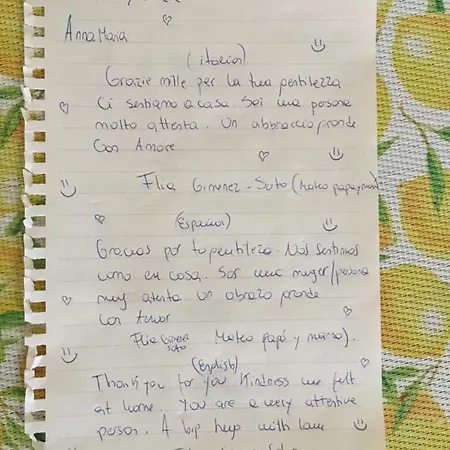 Anna Maria
(italian)
Grazie mille per la tua pentilezza
Ci sentiamo a casa. Sei una persona
molto attesta. Un abbraccio prande
Con Amore
Flia Gimenez - Soto (Mateo papa y mamá)
(Español)
Gracias por tu pentileza. Nos sentimos
como en casa. Sos una mujer/persona
muy atenta un abrazo prande
con Amor
Flia Gimenez Soto Mateo papá y mamá).
(English)
Thank you for you Kindness we felt
at home. You are a very attentive
person. A bip hup with love